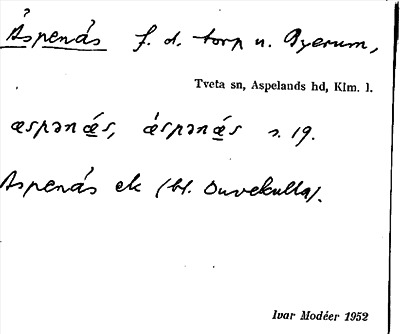 Áspenás f. d. torp u. Byerum,
Tveta sn, Aspelands hd, Klm. l.
æspənǽs, ǽspənæs s. 19.
Aspenäs ek (bl. Duvekulla).
Ivar Modéer 1952